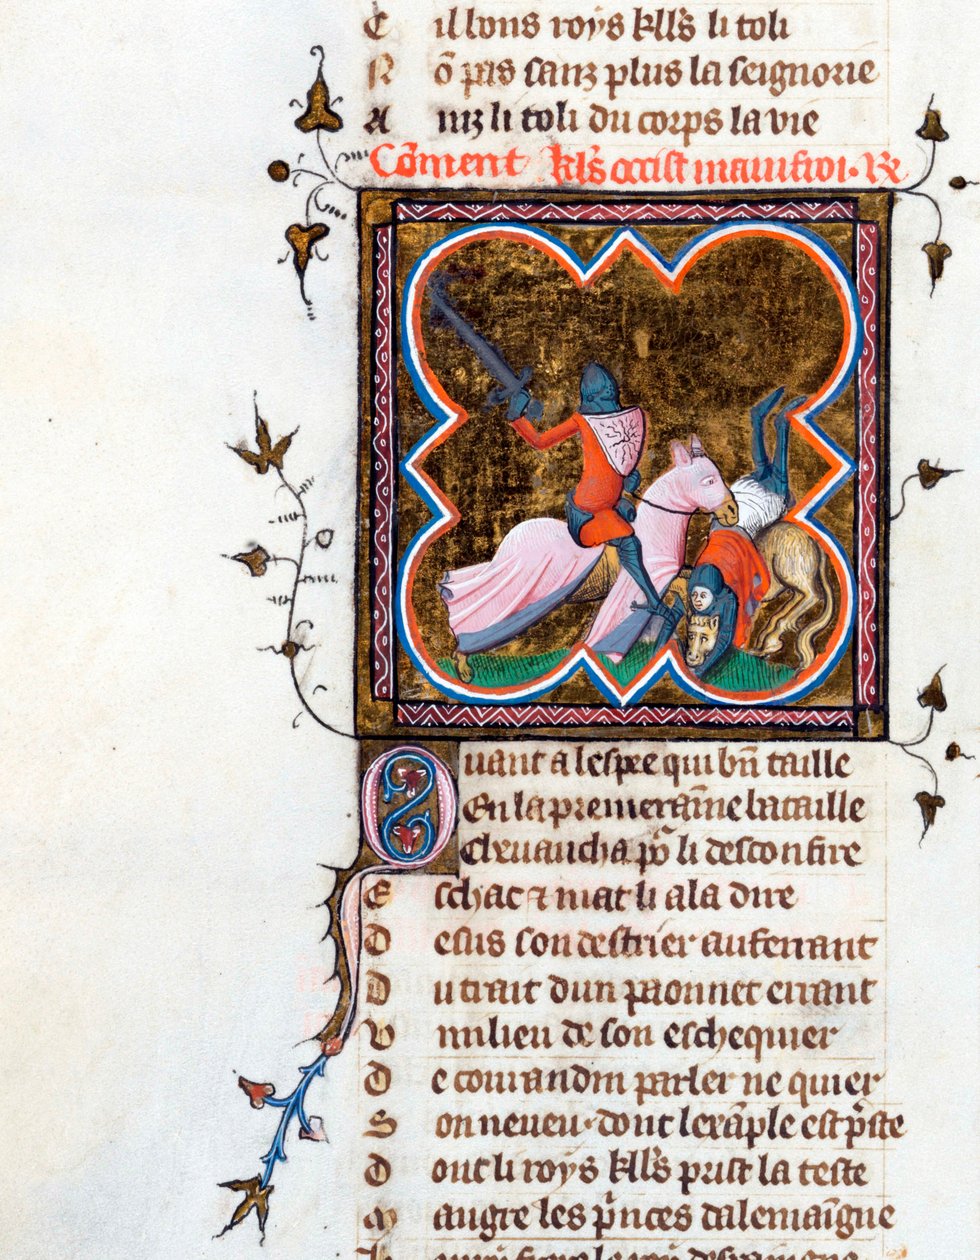 C il bons roys kll's li toli
N õ pas sanz plus la seignorie
A nɩz li toli du corps la vie
Cõment kl's occist mainfroi. Rx
Quant a lespee qui bñ taille
En la premeraĩne bataille
Chevaucha põ li desconfire
E schac ⁊ mat li ala dire
D esus son destrier auferrant
D u trait dun paonnet errant
V milieu de son eschequier
D e corrandin parler ne quier
S on neveu·dont lexãple est p̃ste
D ont li roys kll's prist la teste
M augre les p̃nces dalemaĩgne